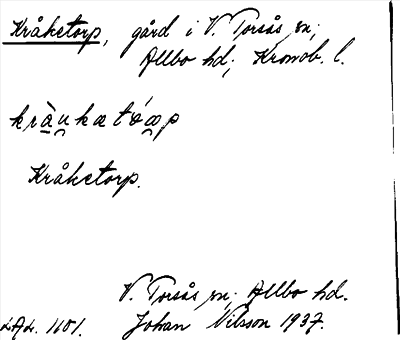 Kråketorp, gård i V. Torsås sn;
Allbo hd; Kronob. l.
kràu̯kætóa̯p
Kråketorp.
V. Torsås sn; Allbo hd.
LAL. 1101. Johan Nilsson 1937.